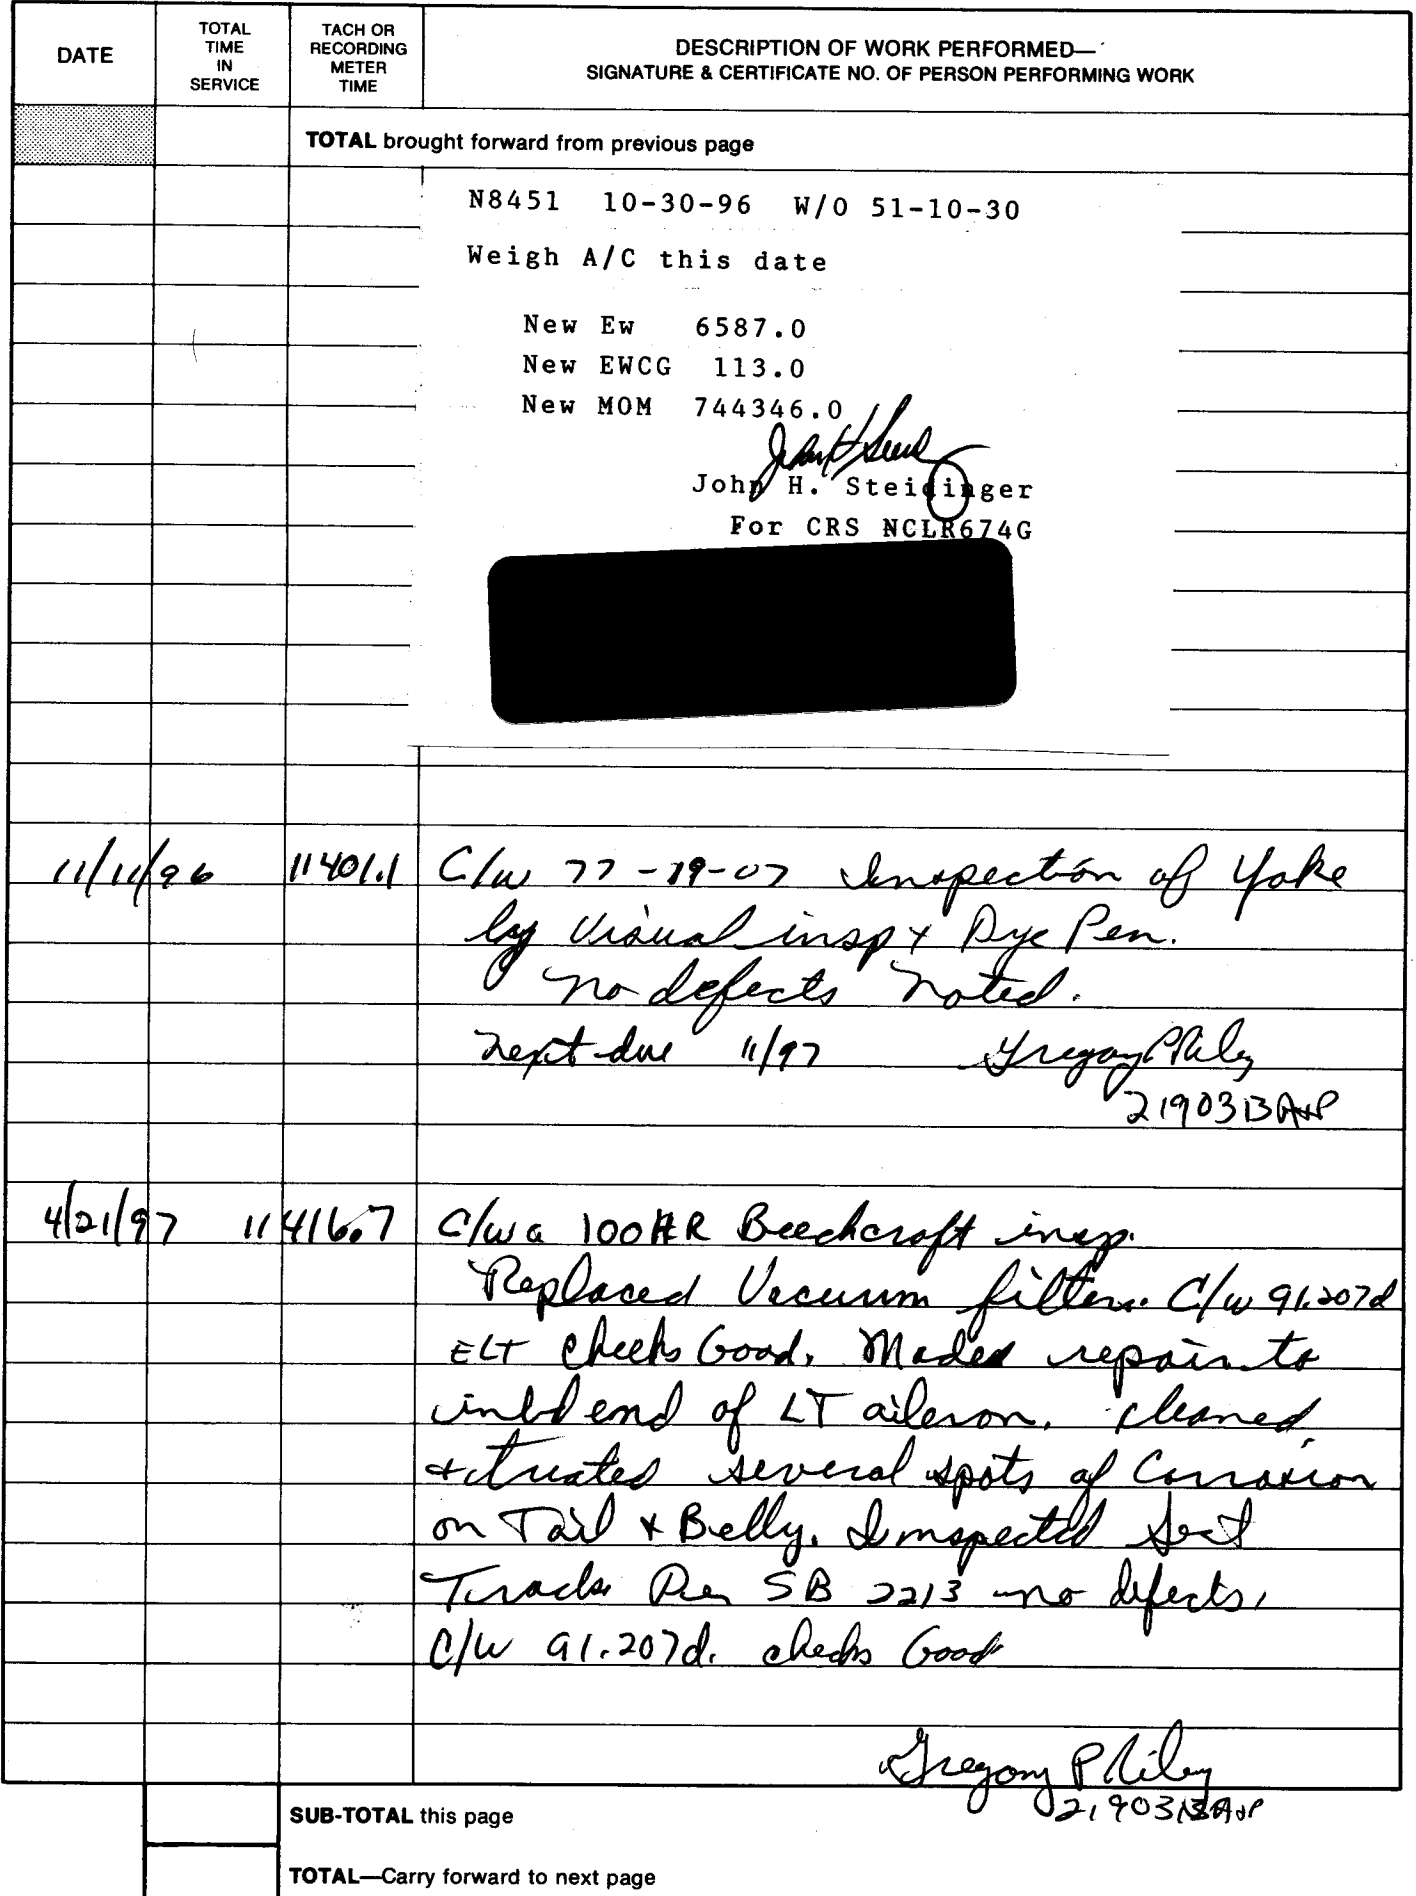 DATE
TOTAL TIME IN SERVICE
TACH OR RECORDING METER TIME
DESCRIPTION OF WORK PERFORMED—
SIGNATURE & CERTIFICATE NO. OF PERSON PERFORMING WORK
TOTAL brought forward from previous page
N8451 10-30-96 W/O 51-10-30
Weigh A/C this date
New Ew 6587.0
New EWCG 113.0
New MOM 744346.0
John H. Steidinger
For CRS NCLR674G
11/11/96 11401.1 C/w 77-19-07 Inspection of Yoke
by Visual insp + Dye Pen.
no defects noted.
next due 11/97 Gregory P Riley
2190313 A+P
4/21/97 11416.7 C/w a 100 HR Beechcraft insp.
Replaced Vacuum filters. C/w 91.207d
ELT checks Good. Made repair to
inbd end of LT aileron. cleaned
+ treated several spots of Corrosion
on Tail + Belly. Inspected Seat
Tracks Per SB 2213 no defects.
C/W 91.207d. checks Good
Gregory P Riley
2190313 A+P
SUB-TOTAL this page
TOTAL—Carry forward to next page